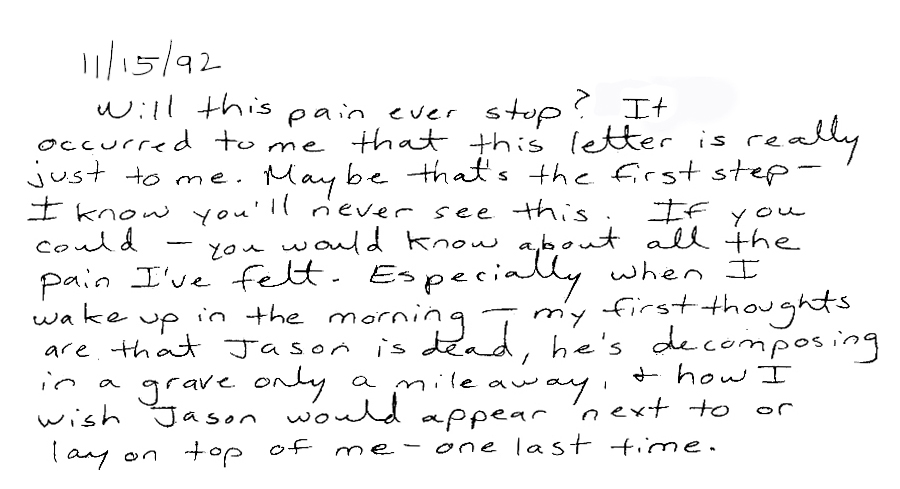 11/15/92
Will this pain ever stop? It
occurred to me that this letter is really
just to me. Maybe that's the first step—
I know you'll never see this. If you
could — you would know about all the
pain I've felt. Especially when I
wake up in the morning — my first thoughts
are that Jason is dead, he's decomposing
in a grave only a mile away, & how I
wish Jason would appear next to or
lay on top of me — one last time.